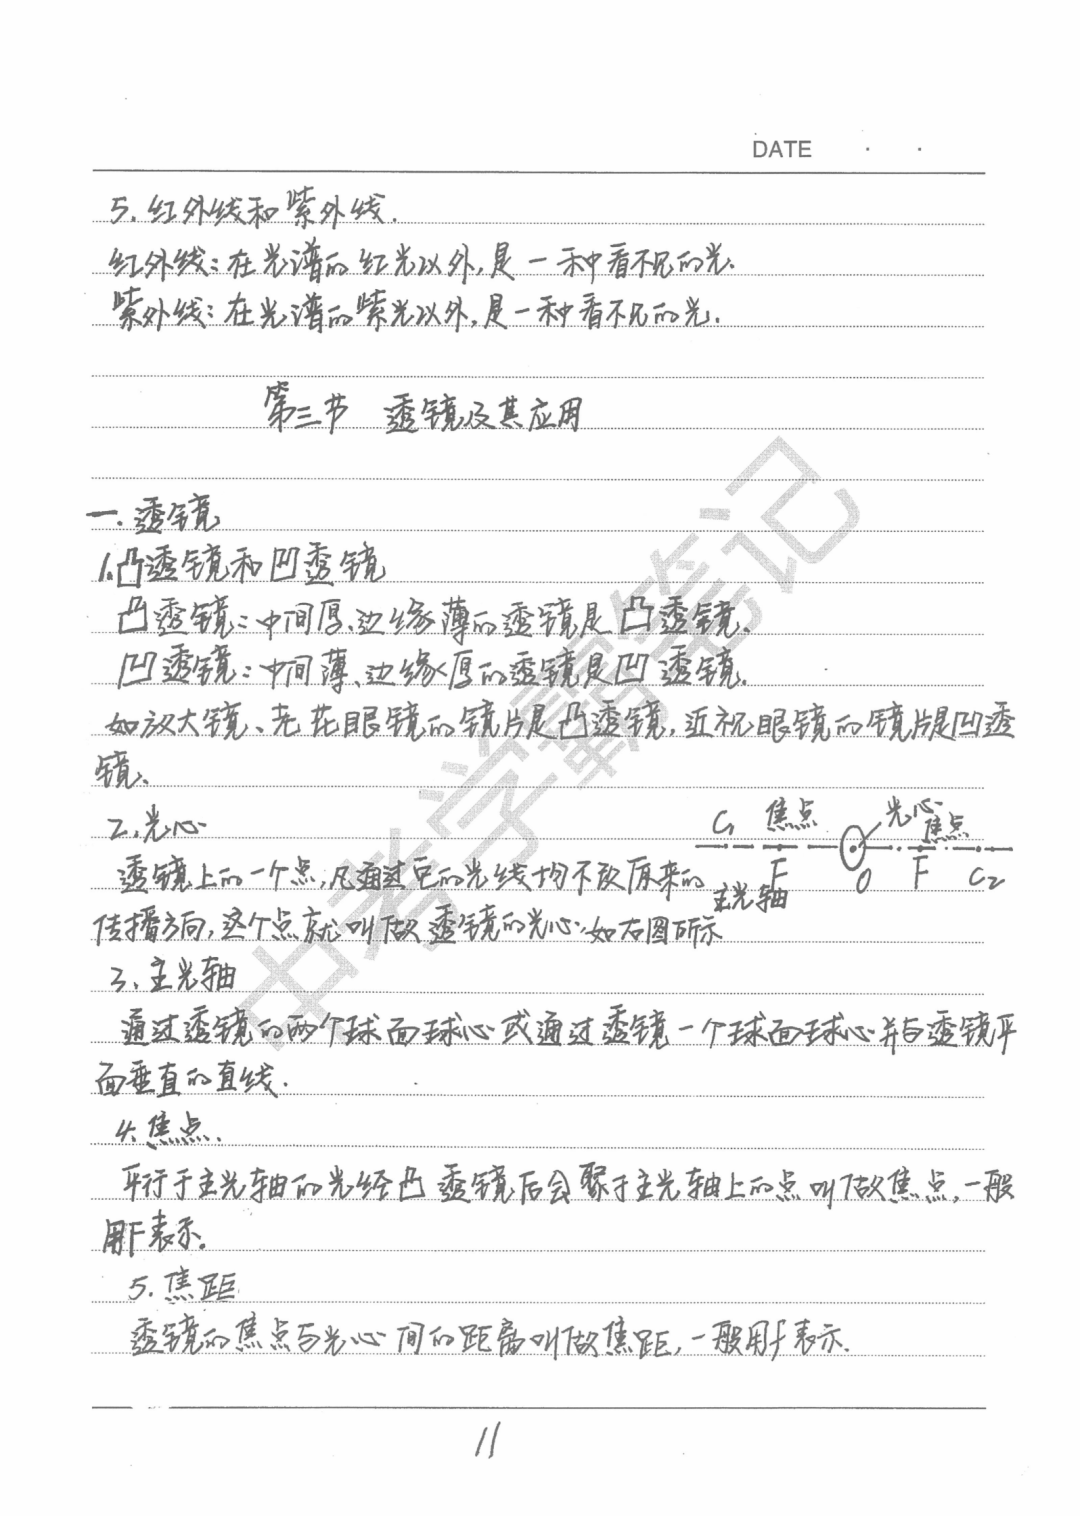 DATE · ·
5.红外线和紫外线.
红外线:在光谱的红光以外,是一种看不见的光.
紫外线:在光谱的紫光以外,是一种看不见的光.
第三节 透镜及其应用
一.透镜
1.凸透镜和凹透镜
凸透镜:中间厚、边缘薄的透镜是凸透镜.
凹透镜:中间薄、边缘厚的透镜是凹透镜.
如放大镜、老花眼镜的镜片是凸透镜,近视眼镜的镜片是凹透
镜.
2.光心
透镜上的一个点,凡通过它的光线均不改原来的
传播方向,这个点就叫做透镜的光心.如右图所示
C₁ 焦点 光心 焦点
F O F C₂
主光轴
3.主光轴
通过透镜的两个球面球心或通过透镜一个球面球心并与透镜平
面垂直的直线.
4.焦点.
平行于主光轴的光经凸透镜后会聚于主光轴上的点叫做焦点,一般
用F表示.
5.焦距
透镜的焦点与光心间的距离叫做焦距,一般用f表示.
11
中考学霸笔记